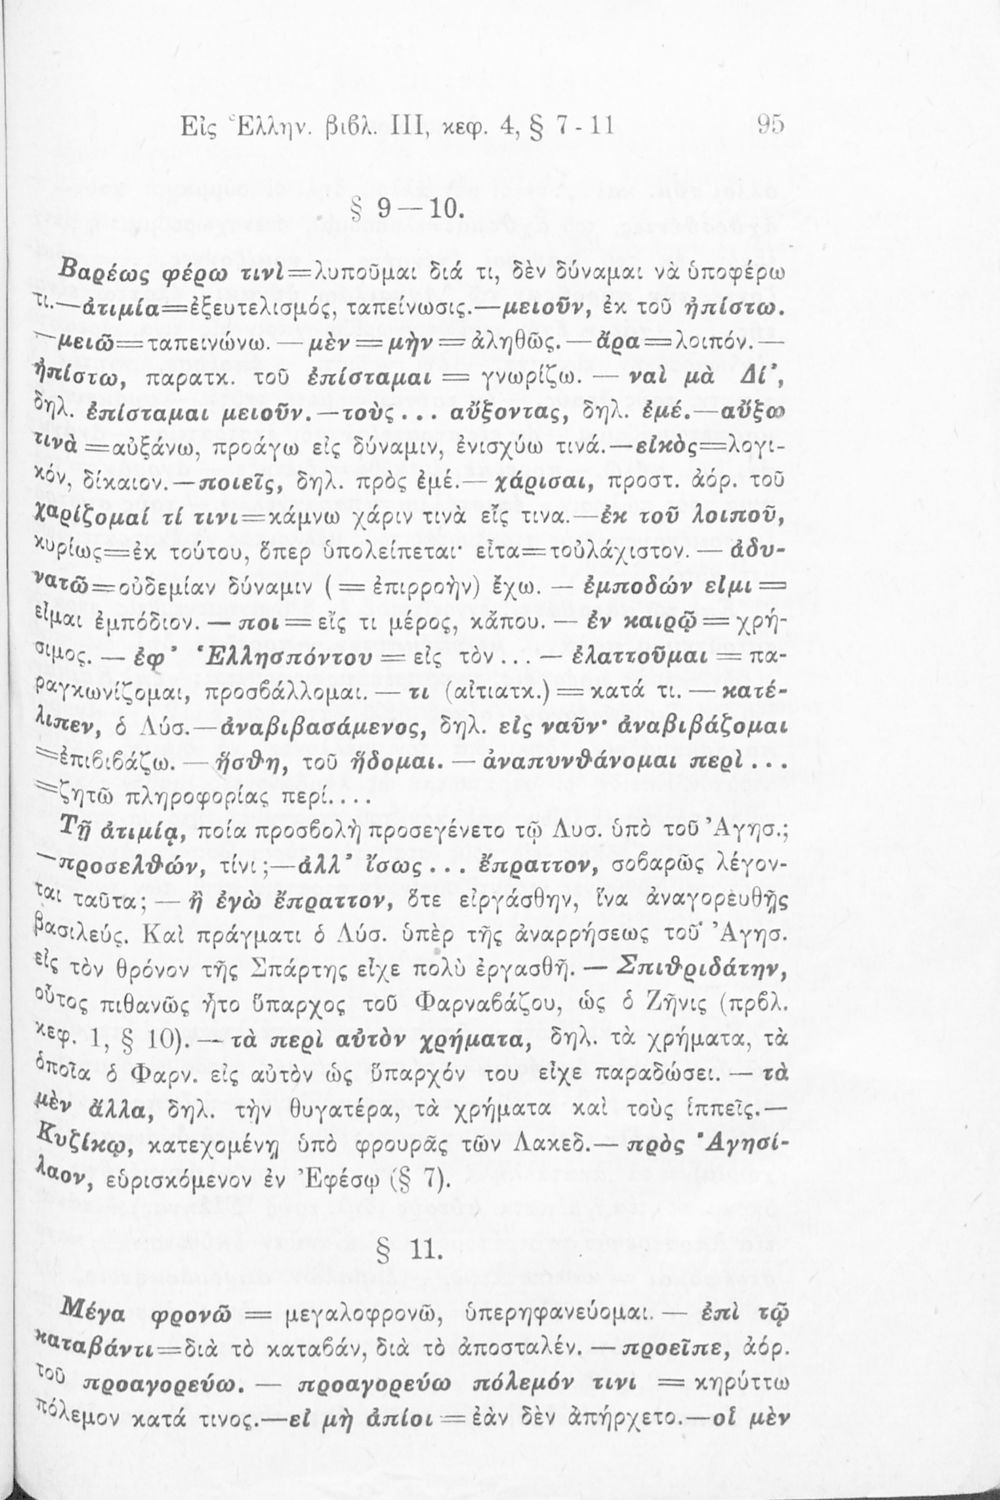 Εἰς Ἑλλην. βιβλ. III, κεφ. 4, § 7 - 11 95
§ 9 — 10.
Βαρέως φέρω τινὶ=λυποῦμαι διά τι, δὲν δύναμαι νὰ ὑποφέρω
τι.—ἀτιμία=ἐξευτελισμός, ταπείνωσις.—μειοῦν, ἐκ τοῦ ἠπίστω.
—μειῶ=ταπεινώνω. — μὲν = μὴν = ἀληθῶς. — ἄρα=λοιπόν. —
ἠπίστω, παρατκ. τοῦ ἐπίσταμαι = γνωρίζω. — ναὶ μὰ Δί',
δηλ. ἐπίσταμαι μειοῦν.—τοὺς ... αὔξοντας, δηλ. ἐμέ.—αὔξω
τινὰ =αὐξάνω, προάγω εἰς δύναμιν, ἐνισχύω τινά.—εἰκὸς=λογι-
κόν, δίκαιον.—ποιεῖς, δηλ. πρὸς ἐμέ.— χάρισαι, προστ. ἀόρ. τοῦ
χαρίζομαί τί τινι=κάμνω χάριν τινὰ εἴς τινα.—ἐκ τοῦ λοιποῦ,
κυρίως=ἐκ τούτου, ὅπερ ὑπολείπεται· εἶτα=τοὐλάχιστον. — ἀδυ-
νατῶ=οὐδεμίαν δύναμιν (= ἐπιρροὴν) ἔχω. — ἐμποδών εἰμι =
εἶμαι ἐμπόδιον. — ποι = εἴς τι μέρος, κἄπου. — ἐν καιρῷ = χρή-
σιμος. — ἐφ' Ἑλλησπόντου = εἰς τὸν ... — ἐλαττοῦμαι = πα-
ραγκωνίζομαι, προσβάλλομαι. — τι (αἰτιατκ.) = κατά τι. — κατέ-
λιπεν, ὁ Λύσ.—ἀναβιβασάμενος, δηλ. εἰς ναῦν· ἀναβιβάζομαι
=ἐπιβιβάζω. — ἥσθη, τοῦ ἥδομαι. — ἀναπυνθάνομαι περὶ ...
=ζητῶ πληροφορίας περί....
Τῇ ἀτιμίᾳ, ποία προσβολὴ προσεγένετο τῷ Λυσ. ὑπὸ τοῦ Ἀγησ.;
—προσελθών, τίνι;—ἀλλ' ἴσως ... ἔπραττον, σοβαρῶς λέγον-
ται ταῦτα; — ἢ ἐγὼ ἔπραττον, ὅτε εἰργάσθην, ἵνα ἀναγορευθῇς
βασιλεύς. Καὶ πράγματι ὁ Λύσ. ὑπὲρ τῆς ἀναρρήσεως τοῦ Ἀγησ.
εἰς τὸν θρόνον τῆς Σπάρτης εἶχε πολὺ ἐργασθῆ. — Σπιθριδάτην,
οὗτος πιθανῶς ἦτο ὕπαρχος τοῦ Φαρναβάζου, ὡς ὁ Ζῆνις (πρβλ.
κεφ. 1, § 10). — τὰ περὶ αὐτὸν χρήματα, δηλ. τὰ χρήματα, τὰ
ὁποῖα ὁ Φαρν. εἰς αὐτὸν ὡς ὕπαρχόν του εἶχε παραδώσει. — τὰ
μὲν ἄλλα, δηλ. τὴν θυγατέρα, τὰ χρήματα καὶ τοὺς ἱππεῖς.—
Κυζίκῳ, κατεχομένῃ ὑπὸ φρουρᾶς τῶν Λακεδ.— πρὸς Ἀγησί-
λαον, εὑρισκόμενον ἐν Ἐφέσῳ (§ 7).
§ 11.
Μέγα φρονῶ = μεγαλοφρονῶ, ὑπερηφανεύομαι. — ἐπὶ τῷ
καταβάντι=διὰ τὸ καταβάν, διὰ τὸ ἀποσταλέν. — προεῖπε, ἀόρ.
τοῦ προαγορεύω. — προαγορεύω πόλεμόν τινι = κηρύττω
πόλεμον κατά τινος.—εἰ μὴ ἀπίοι = ἐὰν δὲν ἀπήρχετο.—οἱ μὲν